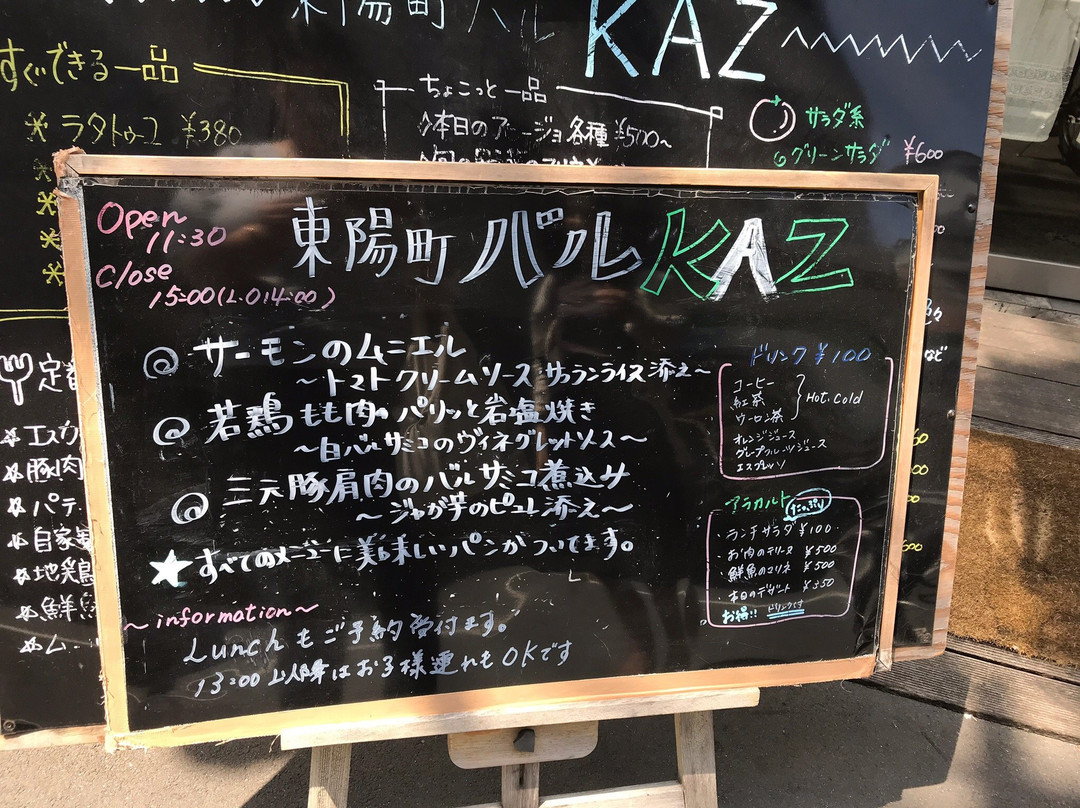 東陽町バル KAZ
すぐできる一品
ラタトゥーユ ¥380
ちょこっと一品
本日のアヒージョ各種 ¥500〜
サラダ系
グリーンサラダ ¥600
定番
豚肉
パテ
自家製
地鶏
鮮魚
Open
11:30
Close
15:00(L.O14:00)
東陽町 バル KAZ
サーモンのムニエル
〜トマトクリームソース サフランライス添え〜
若鶏もも肉パリッと岩塩焼き
〜白バルサミコのヴィネグレットソース〜
三元豚肩肉のバルサミコ煮込み
〜ジャガ芋のピュレ添え〜
★すべてのメニューに美味しいパンがついてます。
〜information〜
Lunchもご予約受付ます。
13:00以降はお子様連れもOKです
ドリンク ¥100
コーヒー
紅茶
ウーロン茶
Hot. Cold
オレンジジュース
グレープフルーツジュース
エスプレッソ
アラカルト たっぷり
ランチサラダ ¥100
お肉のテリーヌ ¥500
鮮魚のマリネ ¥500
本日のデザート ¥350
お得!! ドリンクです